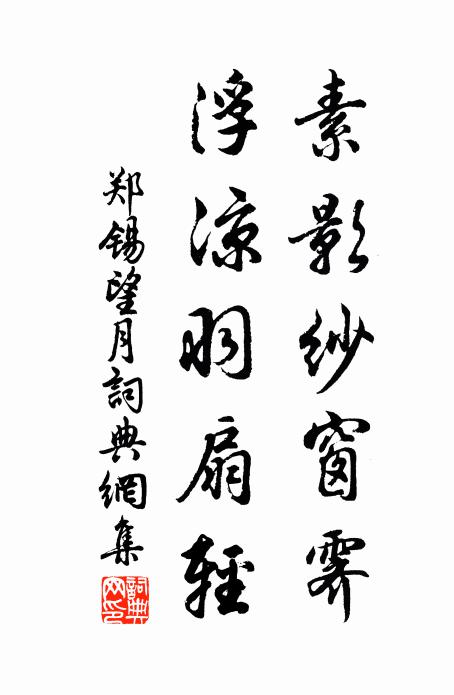 素影紗窗霽
浮涼羽扇輕
郑錫望月詞典網集
詞典网印